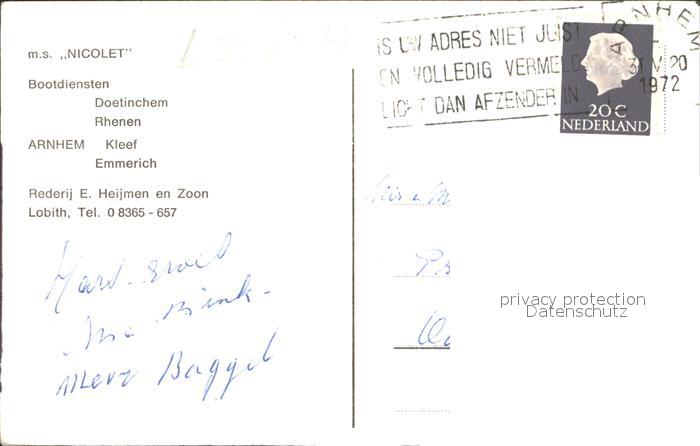 m.s. „NICOLET"
Bootdiensten
Doetinchem
Rhenen
ARNHEM Kleef
Emmerich
Rederij E. Heijmen en Zoon
Lobith, Tel. 0 8365 - 657
Hart. groet
Baggel
IS UW ADRES NIET JUIST
EN VOLLEDIG VERMELD
LICHT DAN AFZENDER IN
ARNHEM
31 V 20
1972
20 C
NEDERLAND
privacy protection
Datenschutz